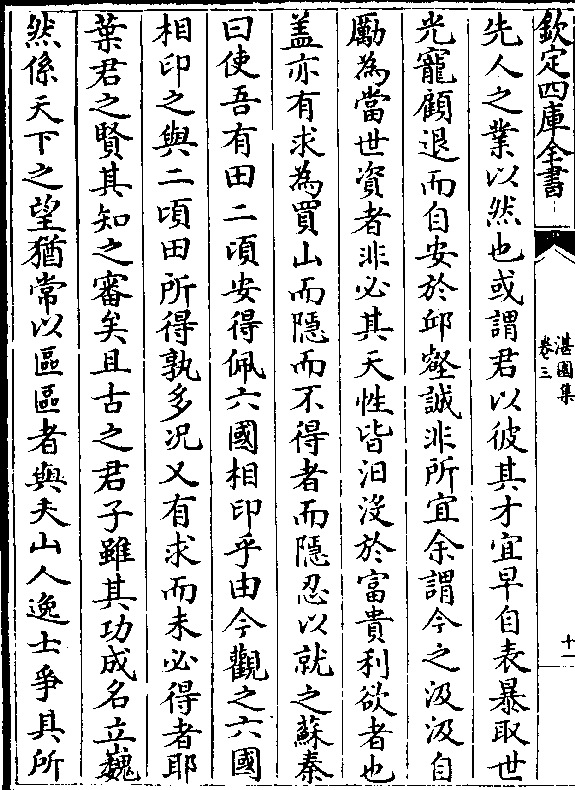 欽定四庫全書
湛園集
卷三
十一
先人之業以然也或謂君以彼其才宜早自表暴取世
光寵顧退而自安於邱壑誠非所宜余謂今之汲汲自
勵為當世資者非必其天性皆汩沒於富貴利欲者也
盖亦有求為買山而隱而不得者而隱忍以就之蘇秦
曰使吾有田二頃安得佩六國相印乎由今觀之六國
相印之與二頃田所得孰多况又有求而未必得者耶
葉君之賢其知之審矣且古之君子雖其功成名立巍
然係天下之望猶常以區區者與夫山人逸士爭其所